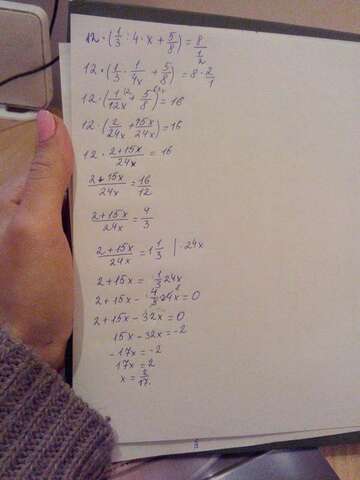 12 · (1/3 : 4 · x + 5/8) = 8/(1/2)
12 · (1/3 · 1/4x + 5/8) = 8 · 2/1
12 · (1/12x + 5/8) = 16
12 · (2/24x + 15x/24x) = 16
12 · 2+15x/24x = 16
2+15x/24x = 16/12
2+15x/24x = 4/3
2+15x/24x = 1 1/3 | · 24x
2+15x = 1/3 24x
2+15x - 4/3 · 24x = 0
2+15x - 32x = 0
15x - 32x = -2
-17x = -2
17x = 2
x = 2/17.